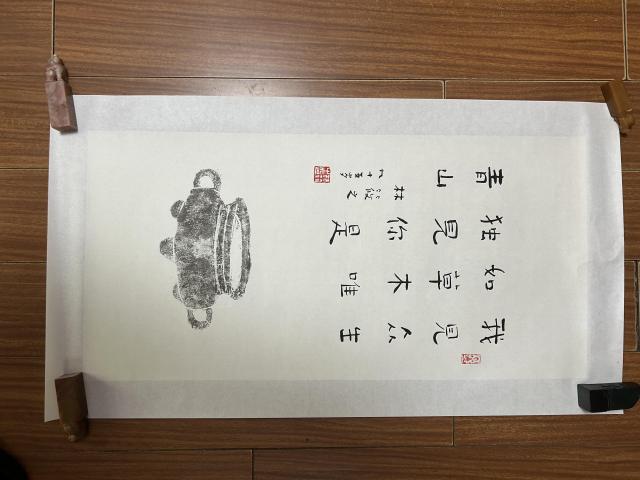 我見众生
如草木唯
独見你是
青山
林筱之